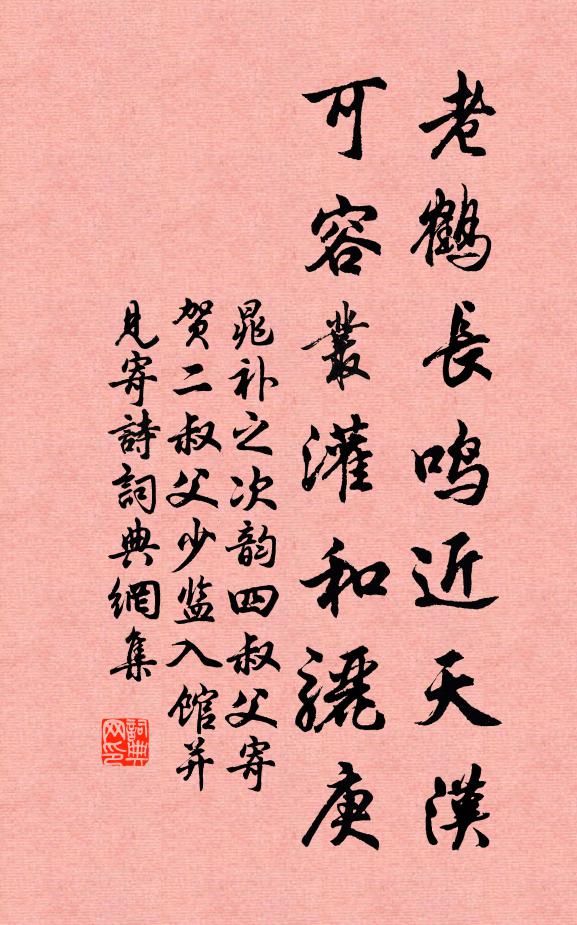 老鹤長鸣近天漢
可容叢灌和骊庚
晁补之次韵四叔父寄
贺二叔父少监入馆并
見寄詩詞典網集
詞典网印